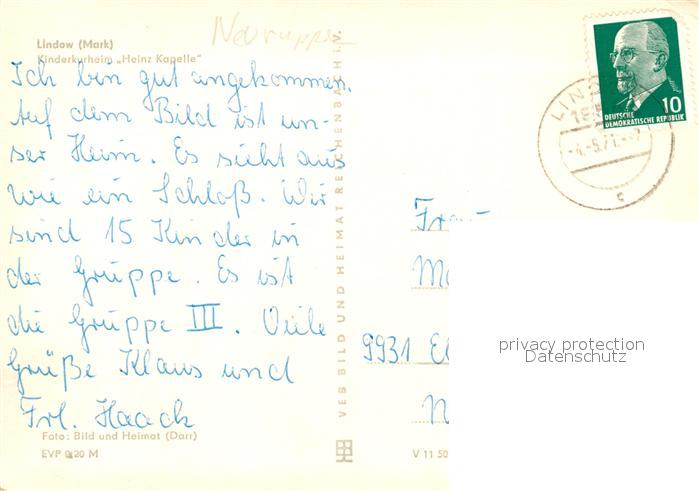 Neuruppin
Lindow (Mark)
Kinderkurheim „Heinz Kapelle"
Ich bin gut angekommen.
Auf dem Bild ist un-
ser Heim. Es sieht aus
wie ein Schloß. Wir
sind 15 Kinder in
der Gruppe. Es ist
die Gruppe III. Viele
Grüße Klaus und
Frl. Haack
Foto: Bild und Heimat (Darr)
EVP 0,20 M
VEB BILD UND HEIMAT REICHENBACH I. V.
V 11 50
10
DEUTSCHE
DEMOKRATISCHE REPUBLIK
LIND
-4.-5.71.-
c
Frau
9931
privacy protection
Datenschutz